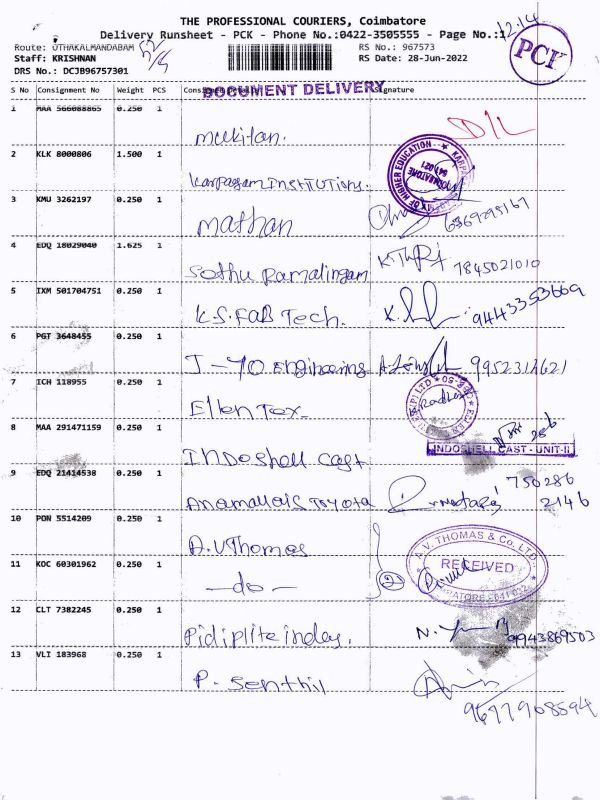 THE PROFESSIONAL COURIERS, Coimbatore
Delivery Runsheet - PCK - Phone No.:0422-3505555 - Page No.:1
12.14
PCK
Route: OTHAKALMANDABAM
Staff: KRISHNAN
DRS No.: DCJB96757301
RS No.: 967573
RS Date: 28-Jun-2022
S No Consignment No Weight PCS Signature
DOCUMENT DELIVERY
1 MAA 566088865 0.250 1 D/L
2 KLK 8000806 1.500 1 Karpagam Institutions.
OF HIGHER EDUCATION
COIMBATORE 641 021
3 KMU 3262197 0.250 1 Mathan
4 EDQ 18029040 1.625 1 Sethu Ramalingam 7845021010
5 IXM 501704751 0.250 1 K.S.FAB Tech. 9443353669
6 PGT 3648455 0.250 1 J-70 Engineering
7 ICH 118955 0.250 1 Ellen Tex. Radha
8 MAA 291471159 0.250 1 Indoshell Cast
INDOSHELL CAST - UNIT-II
9 EDQ 21414538 0.250 1 Anamallais Toyota 750286 2146
10 PON 5514209 0.250 1 A.V Thomas
A.V. THOMAS & Co. LTD.
RECEIVED
11 KOC 60301962 0.250 1 -do- 2
12 CLT 7382245 0.250 1 Pidiplite indes. 9943869503
13 VLI 183968 0.250 1 P. Senthil
9677908594